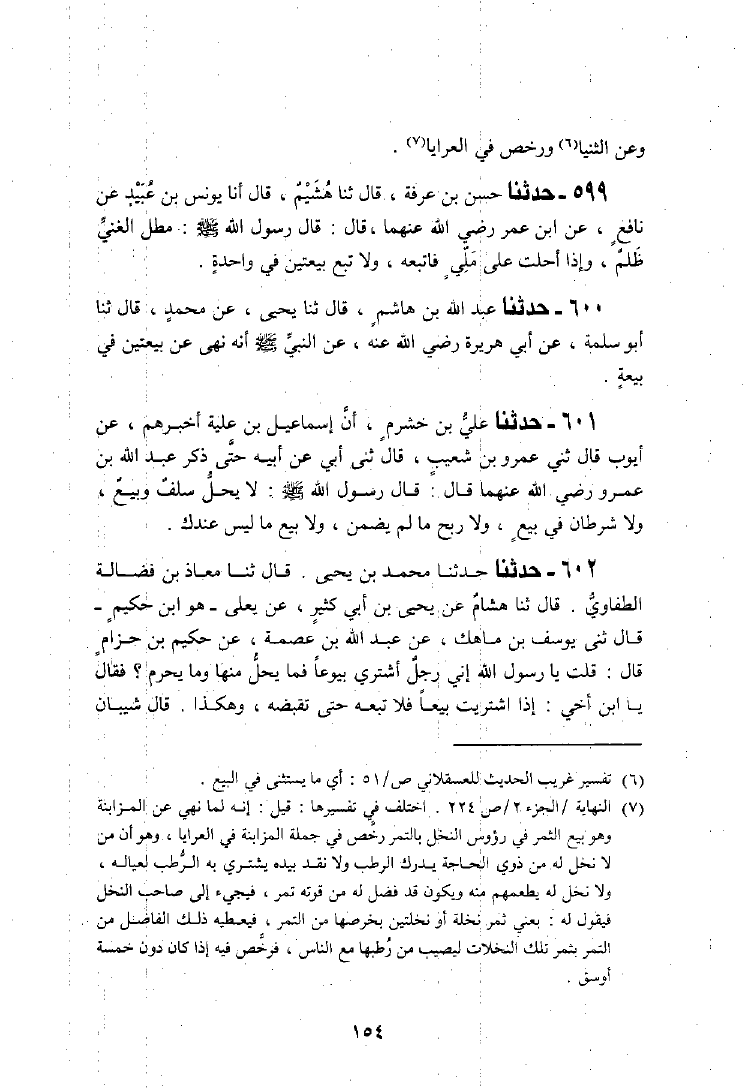 وعن الثنيا(٦) ورخص في العرايا(٧) .
٥٩٩ ـ حدثنا حسن بن عرفة ، قال ثنا هُشَيْمٌ ، قال أنا يونس بن عُبَيْدٍ عن
نافعٍ ، عن ابن عمر رضي الله عنهما ، قال : قال رسول الله ﷺ : مطل الغنيِّ
ظَلمٌ ، وإذا أحلت على مَلِّيٍ فاتبعه ، ولا تبع بيعتين في واحدةٍ .
٦٠٠ ـ حدثنا عبد الله بن هاشمٍ ، قال ثنا يحيى ، عن محمدٍ ، قال ثنا
أبو سلمة ، عن أبي هريرة رضي الله عنه ، عن النبيِّ ﷺ أنه نهى عن بيعتين في
بيعةٍ .
٦٠١ ـ حدثنا عليُّ بن خشرمٍ ، أنَّ إسماعيل بن علية أخبرهم ، عن
أيوب قال ثني عمرو بن شعيبٍ ، قال ثنى أبي عن أبيه حتَّى ذكر عبد الله بن
عمرو رضي الله عنهما قال : قال رسول الله ﷺ : لا يحلُّ سلفٌ وبيعٌ ،
ولا شرطان في بيعٍ ، ولا ربح ما لم يضمن ، ولا بيع ما ليس عندك .
٦٠٢ ـ حدثنا حدثنا محمد بن يحيى . قال ثنا معاذ بن فضالة
الطفاويُّ . قال ثنا هشامٌ عن يحيى بن أبي كثيرٍ ، عن يعلى ـ هو ابن حكيمٍ ـ
قال ثنى يوسف بن ماهك ، عن عبد الله بن عصمة ، عن حكيم بن حزامٍ
قال : قلت يا رسول الله إني رجلٌ أشتري بيوعاً فما يحلُّ منها وما يحرم ؟ فقال
يا ابن أخي : إذا اشتريت بيعاً فلا تبعه حتى تقبضه ، وهكذا . قال شيبان
(٦) تفسير غريب الحديث للعسقلاني ص/٥١ : أي ما يستثنى في البيع .
(٧) النهاية /الجزء ٢/ص ٢٢٤ . اختلف في تفسيرها : قيل : إنه لما نهي عن المزابنة
وهو بيع الثمر في رؤوس النخل بالتمر رخَّص في جملة المزابنة في العرايا ، وهو أن من
لا نخل له من ذوي الحاجة يدرك الرطب ولا نقد بيده يشتري به الرُّطب لعياله ،
ولا نخل له يطعمهم منه ويكون قد فضل له من قوته تمر ، فيجيء إلى صاحب النخل
فيقول له : بعني ثمر نخلة أو نخلتين بخرصها من التمر ، فيعطيه ذلك الفاضل من
التمر بثمر تلك النخلات ليصيب من رُطبها مع الناس ، فرخَّص فيه إذا كان دون خمسة
أوسق .
١٥٤